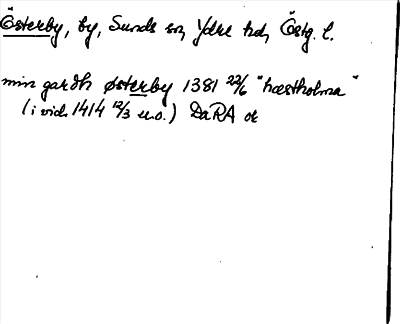 Österby, by, Sunds sn, Ydre hd, Östg. l.
min gardh østerby 1381 22/6 "hæstholma"
(i vid. 1414 12/3 u.o.) DaRA or